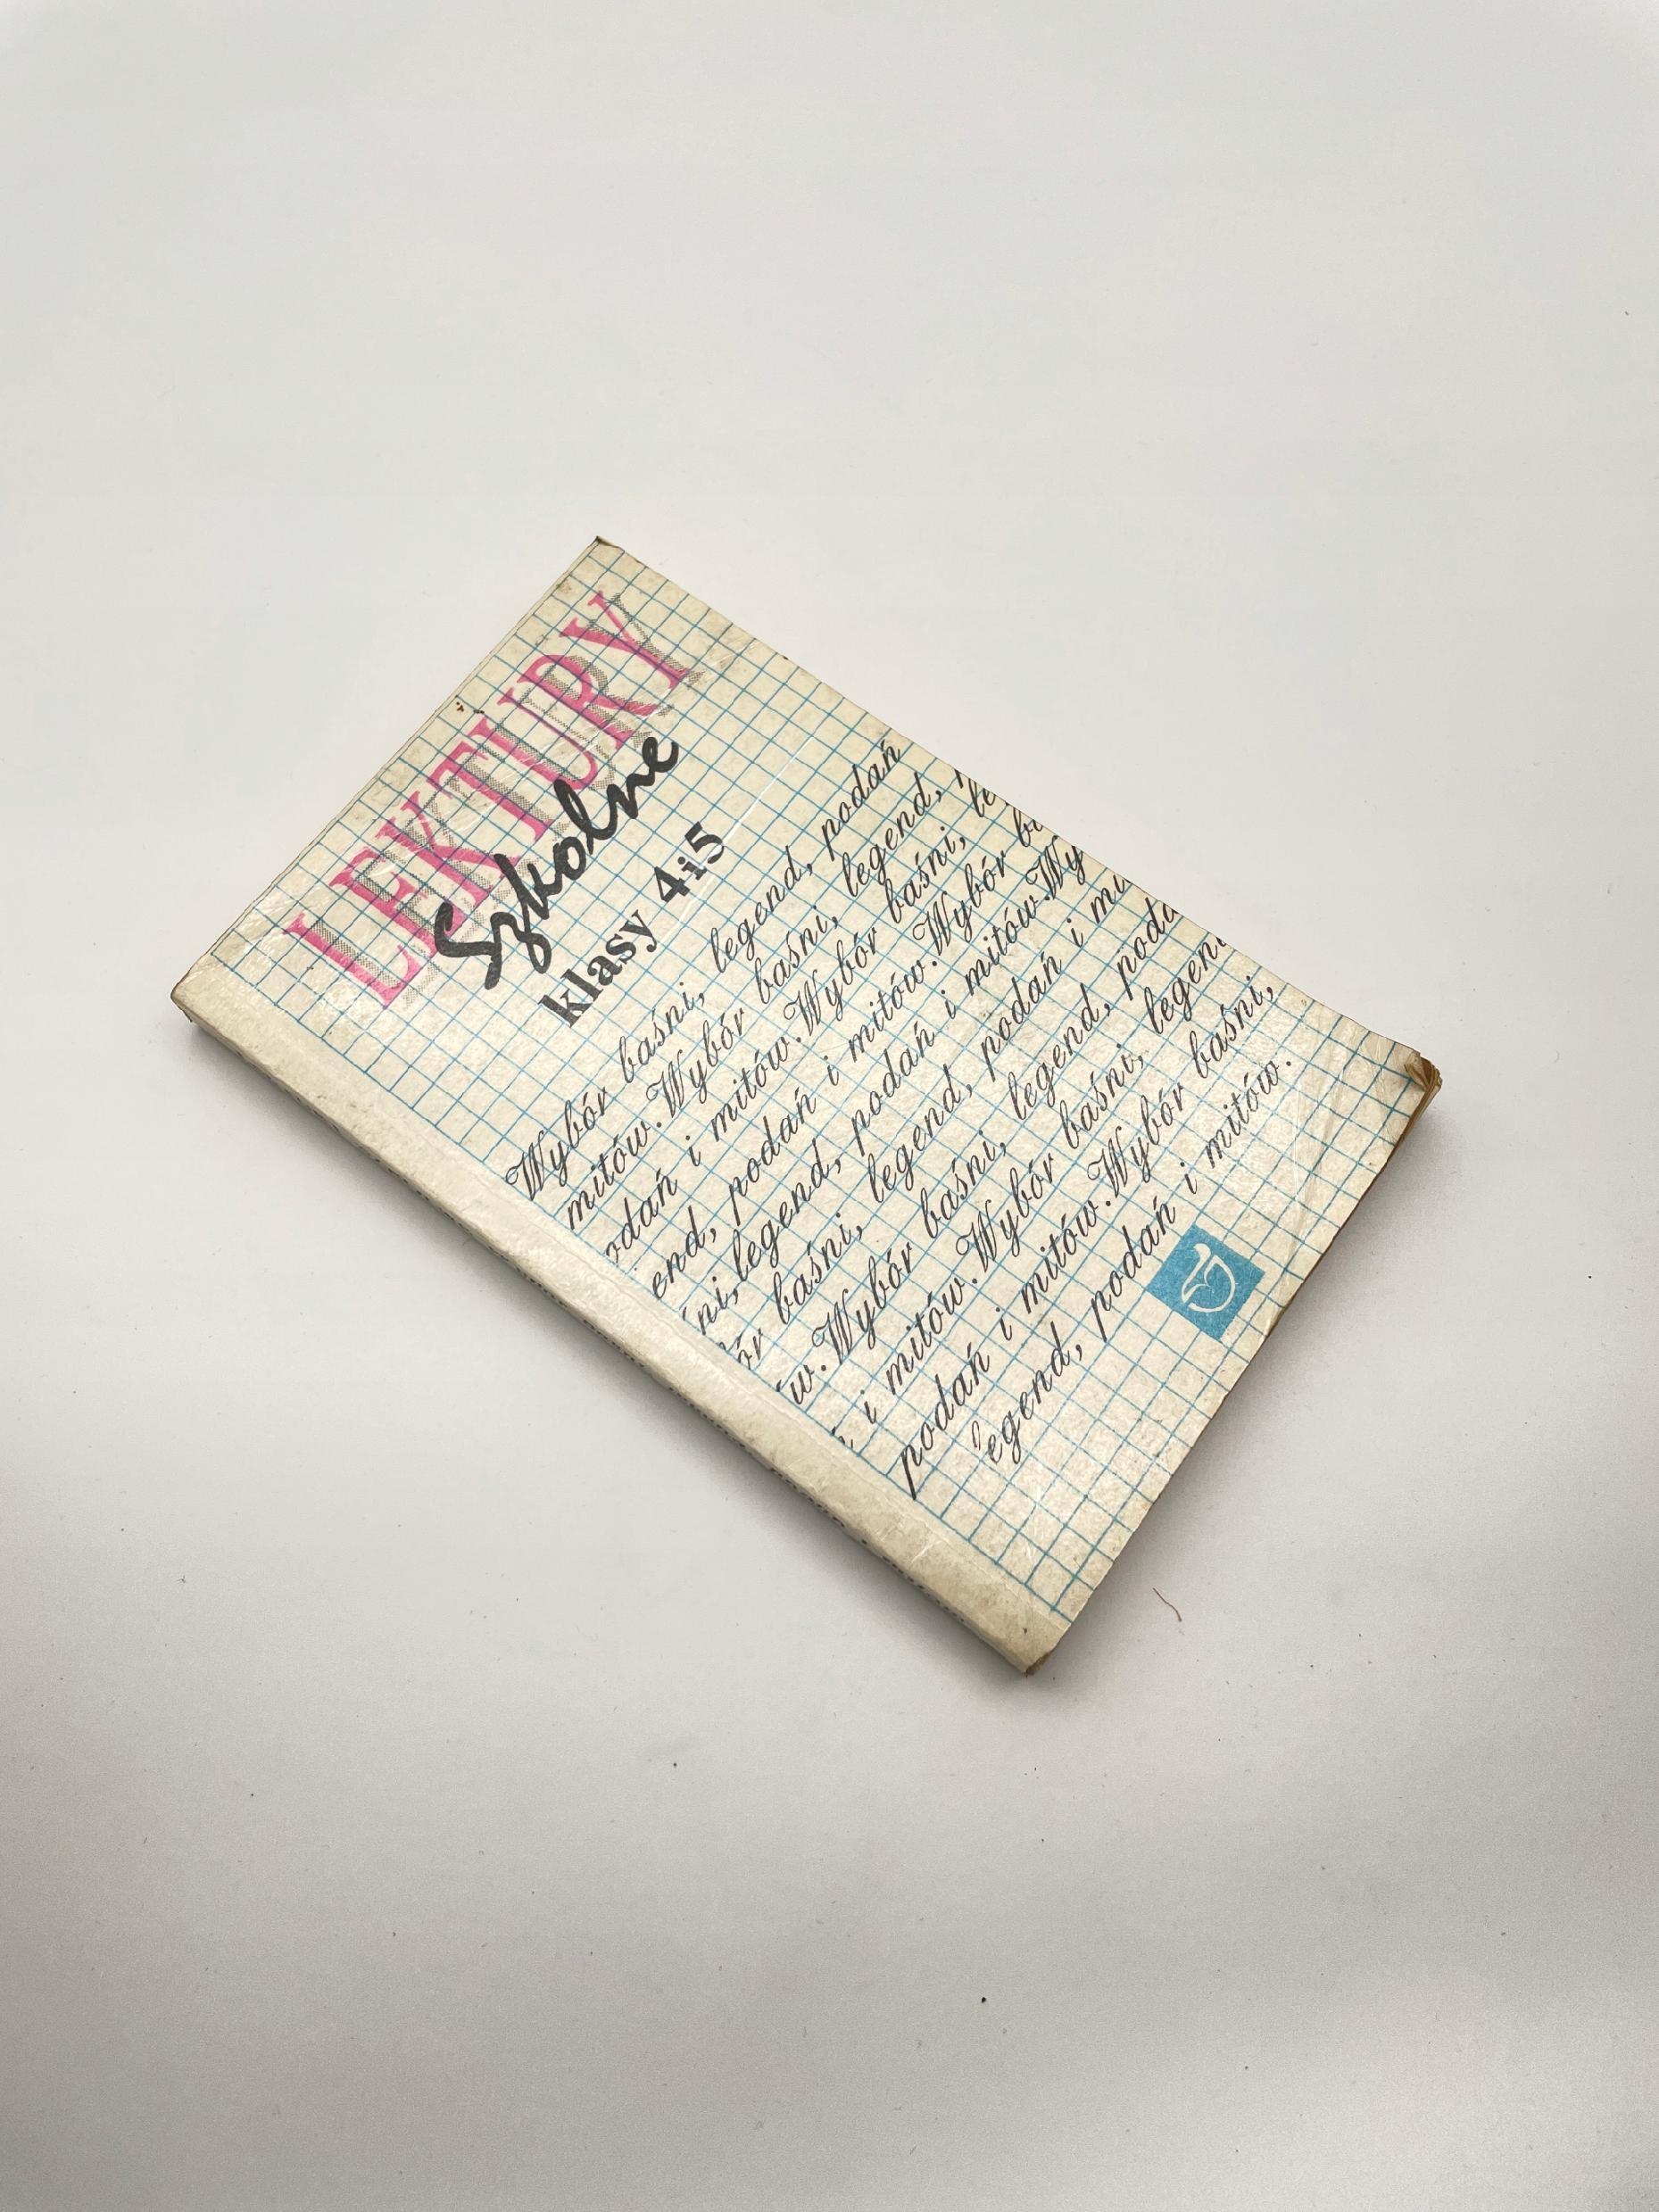 LEKTURY
Szkolne
klasy 4i5
Wybór baśni, legend, podań
mitów.Wybór baśni, legend,
odań i mitów.Wybór baśni, le
end, podań i mitów.Wybór b
śni,legend, podań i mitów.Wy
ór baśni, legend, podań i mi
w.Wybór baśni, legend, poda
i mitów.Wybór baśni, legen
podań i mitów.Wybór baśni,
legend, podań i mitów.